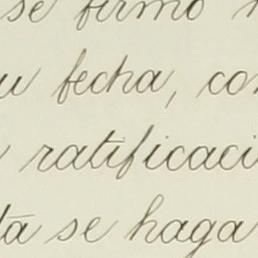 se firmo
su fecha, con
ratificaci
ta se haga